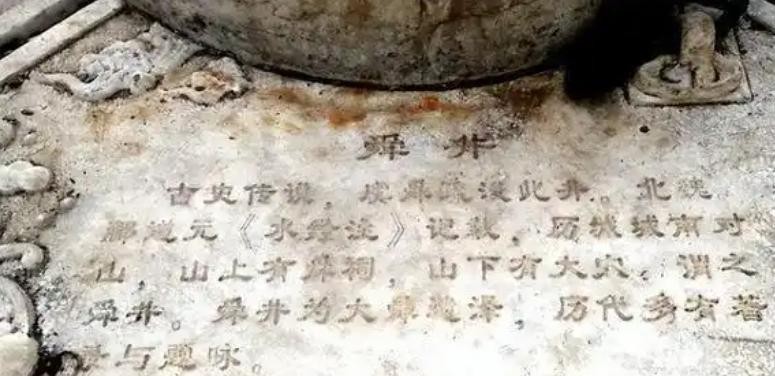 舜井
古史传说，虞舜疏浚此井。北魏
郦道元《水经注》记载，历城城南对
山，山上有舜祠，山下有大穴。谓之
舜井。舜井为大舜遗泽，历代多有著
录与题咏。